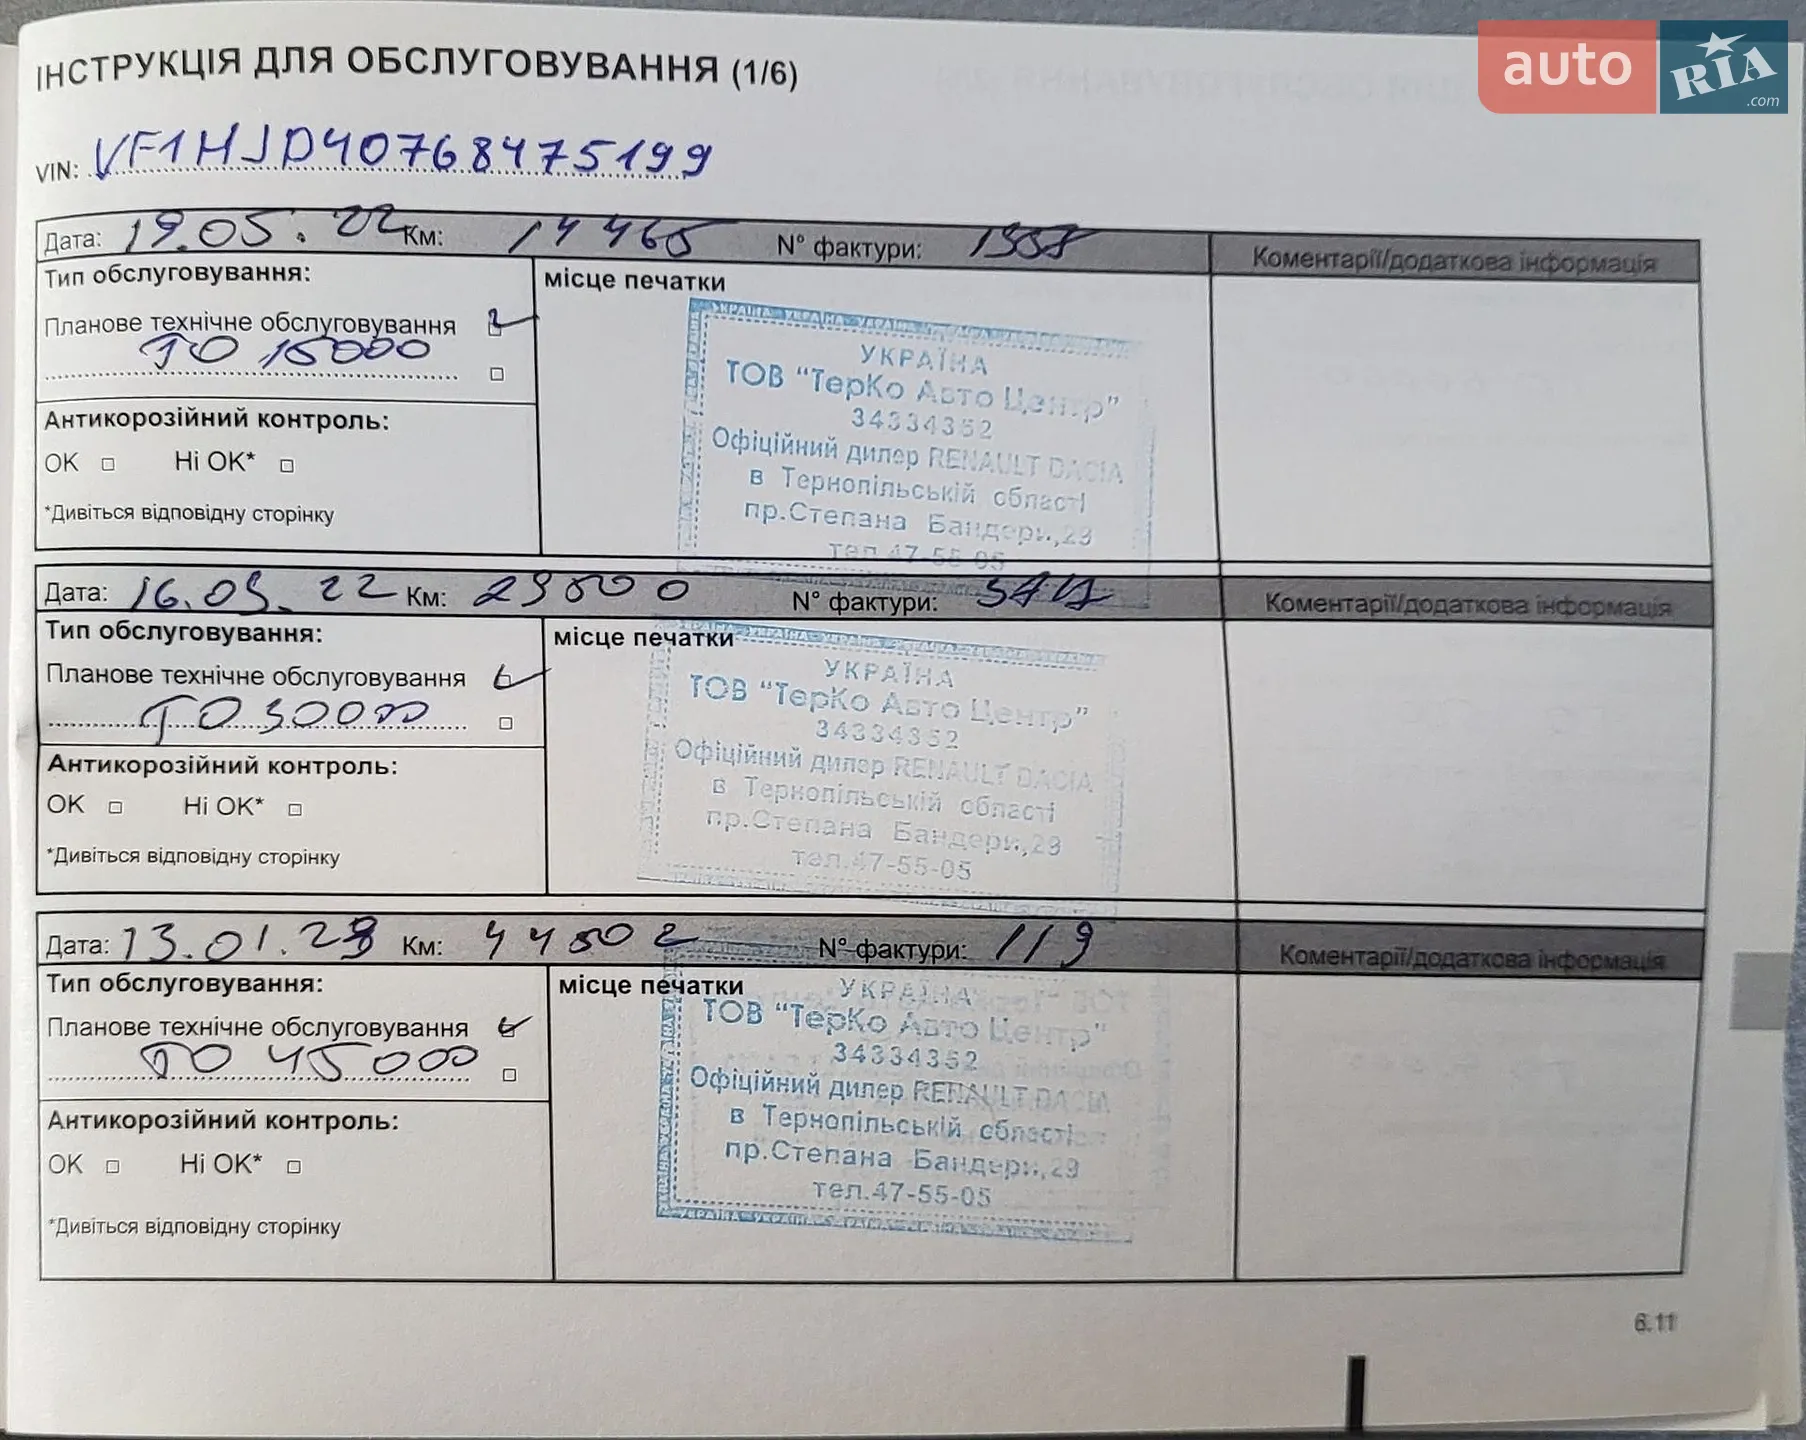 ІНСТРУКЦІЯ ДЛЯ ОБСЛУГОВУВАННЯ (1/6)
auto RIA.com
VIN: VF1HJD40768475199
Дата: 19.05.22 Км: 14465 N° фактури: Коментарії/додаткова інформація
Тип обслуговування: місце печатки
Планове технічне обслуговування
ТО 15000
УКРАЇНА
ТОВ "ТерКо Авто Центр"
34334352
Офіційний дилер RENAULT DACIA
в Тернопільській області
пр.Степана Бандери,29
тел.47-55-05
Антикорозійний контроль:
OK Ні OK*
*Дивіться відповідну сторінку
Дата: 16.09.22 Км: 29500 N° фактури: Коментарії/додаткова інформація
Тип обслуговування: місце печатки
Планове технічне обслуговування
ТО 30000
УКРАЇНА
ТОВ "ТерКо Авто Центр"
34334352
Офіційний дилер RENAULT DACIA
в Тернопільській області
пр.Степана Бандери,29
тел.47-55-05
Антикорозійний контроль:
OK Ні OK*
*Дивіться відповідну сторінку
Дата: 13.01.23 Км: 44502 N° фактури: 119 Коментарії/додаткова інформація
Тип обслуговування: місце печатки
Планове технічне обслуговування
ТО 45000
УКРАЇНА
ТОВ "ТерКо Авто Центр"
34334352
Офіційний дилер RENAULT DACIA
в Тернопільській області
пр.Степана Бандери,29
тел.47-55-05
Антикорозійний контроль:
OK Ні OK*
*Дивіться відповідну сторінку
6.11